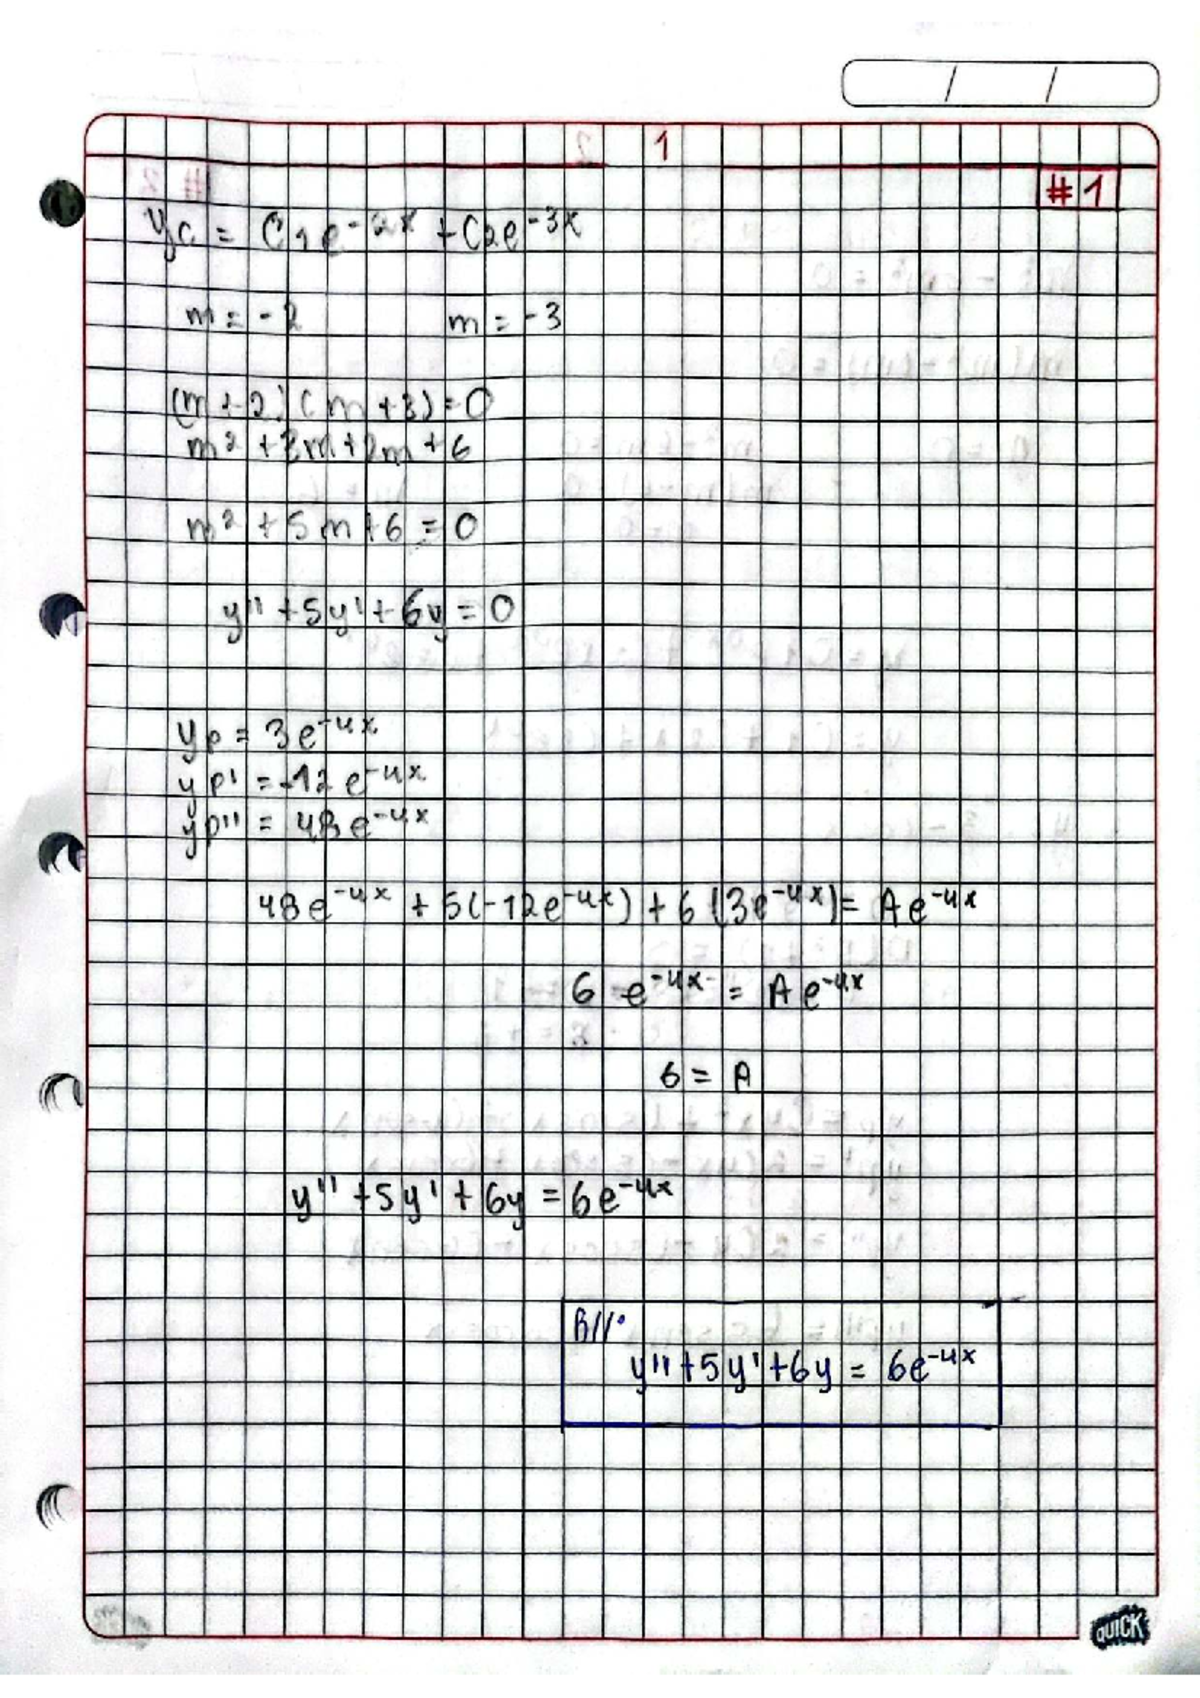 1
#1
yc = C1e^-2x + C2e^-3x
m = -2 m = -3
(m+2)(m+3)=0
m² + 3m + 2m + 6
m² + 5m + 6 = 0
y'' + 5y' + 6y = 0
yp = 3e^-4x
yp' = -12e^-4x
yp'' = 48e^-4x
48e^-4x + 5(-12e^-4x) + 6(3e^-4x) = Ae^-4x
6 e^-4x = Ae^-4x
6 = A
y'' + 5y' + 6y = 6e^-4x
R//.
y'' + 5y' + 6y = 6e^-4x
QUICK